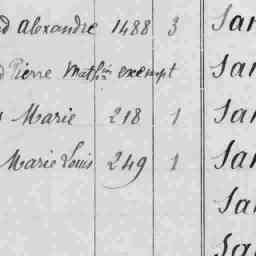 d Alexandre 1488 3
Pierre Math.in exempt
Marie 218 1
Marie Louis 249 1
San
San
San
San
San
San